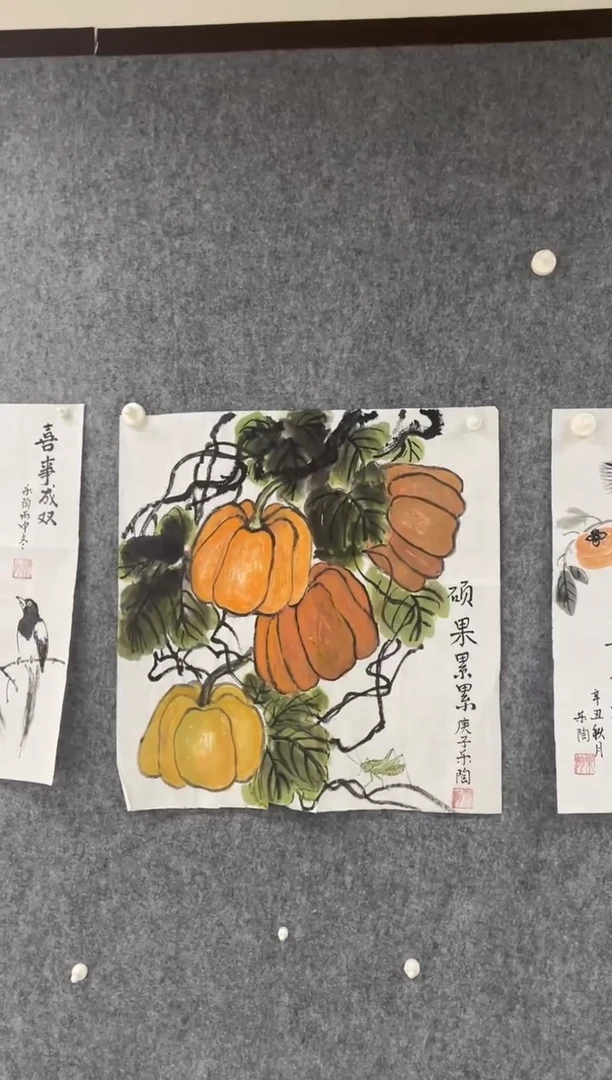 喜事成双
乐陶丙申冬
硕果累累
庚子乐陶
辛丑秋月
乐陶